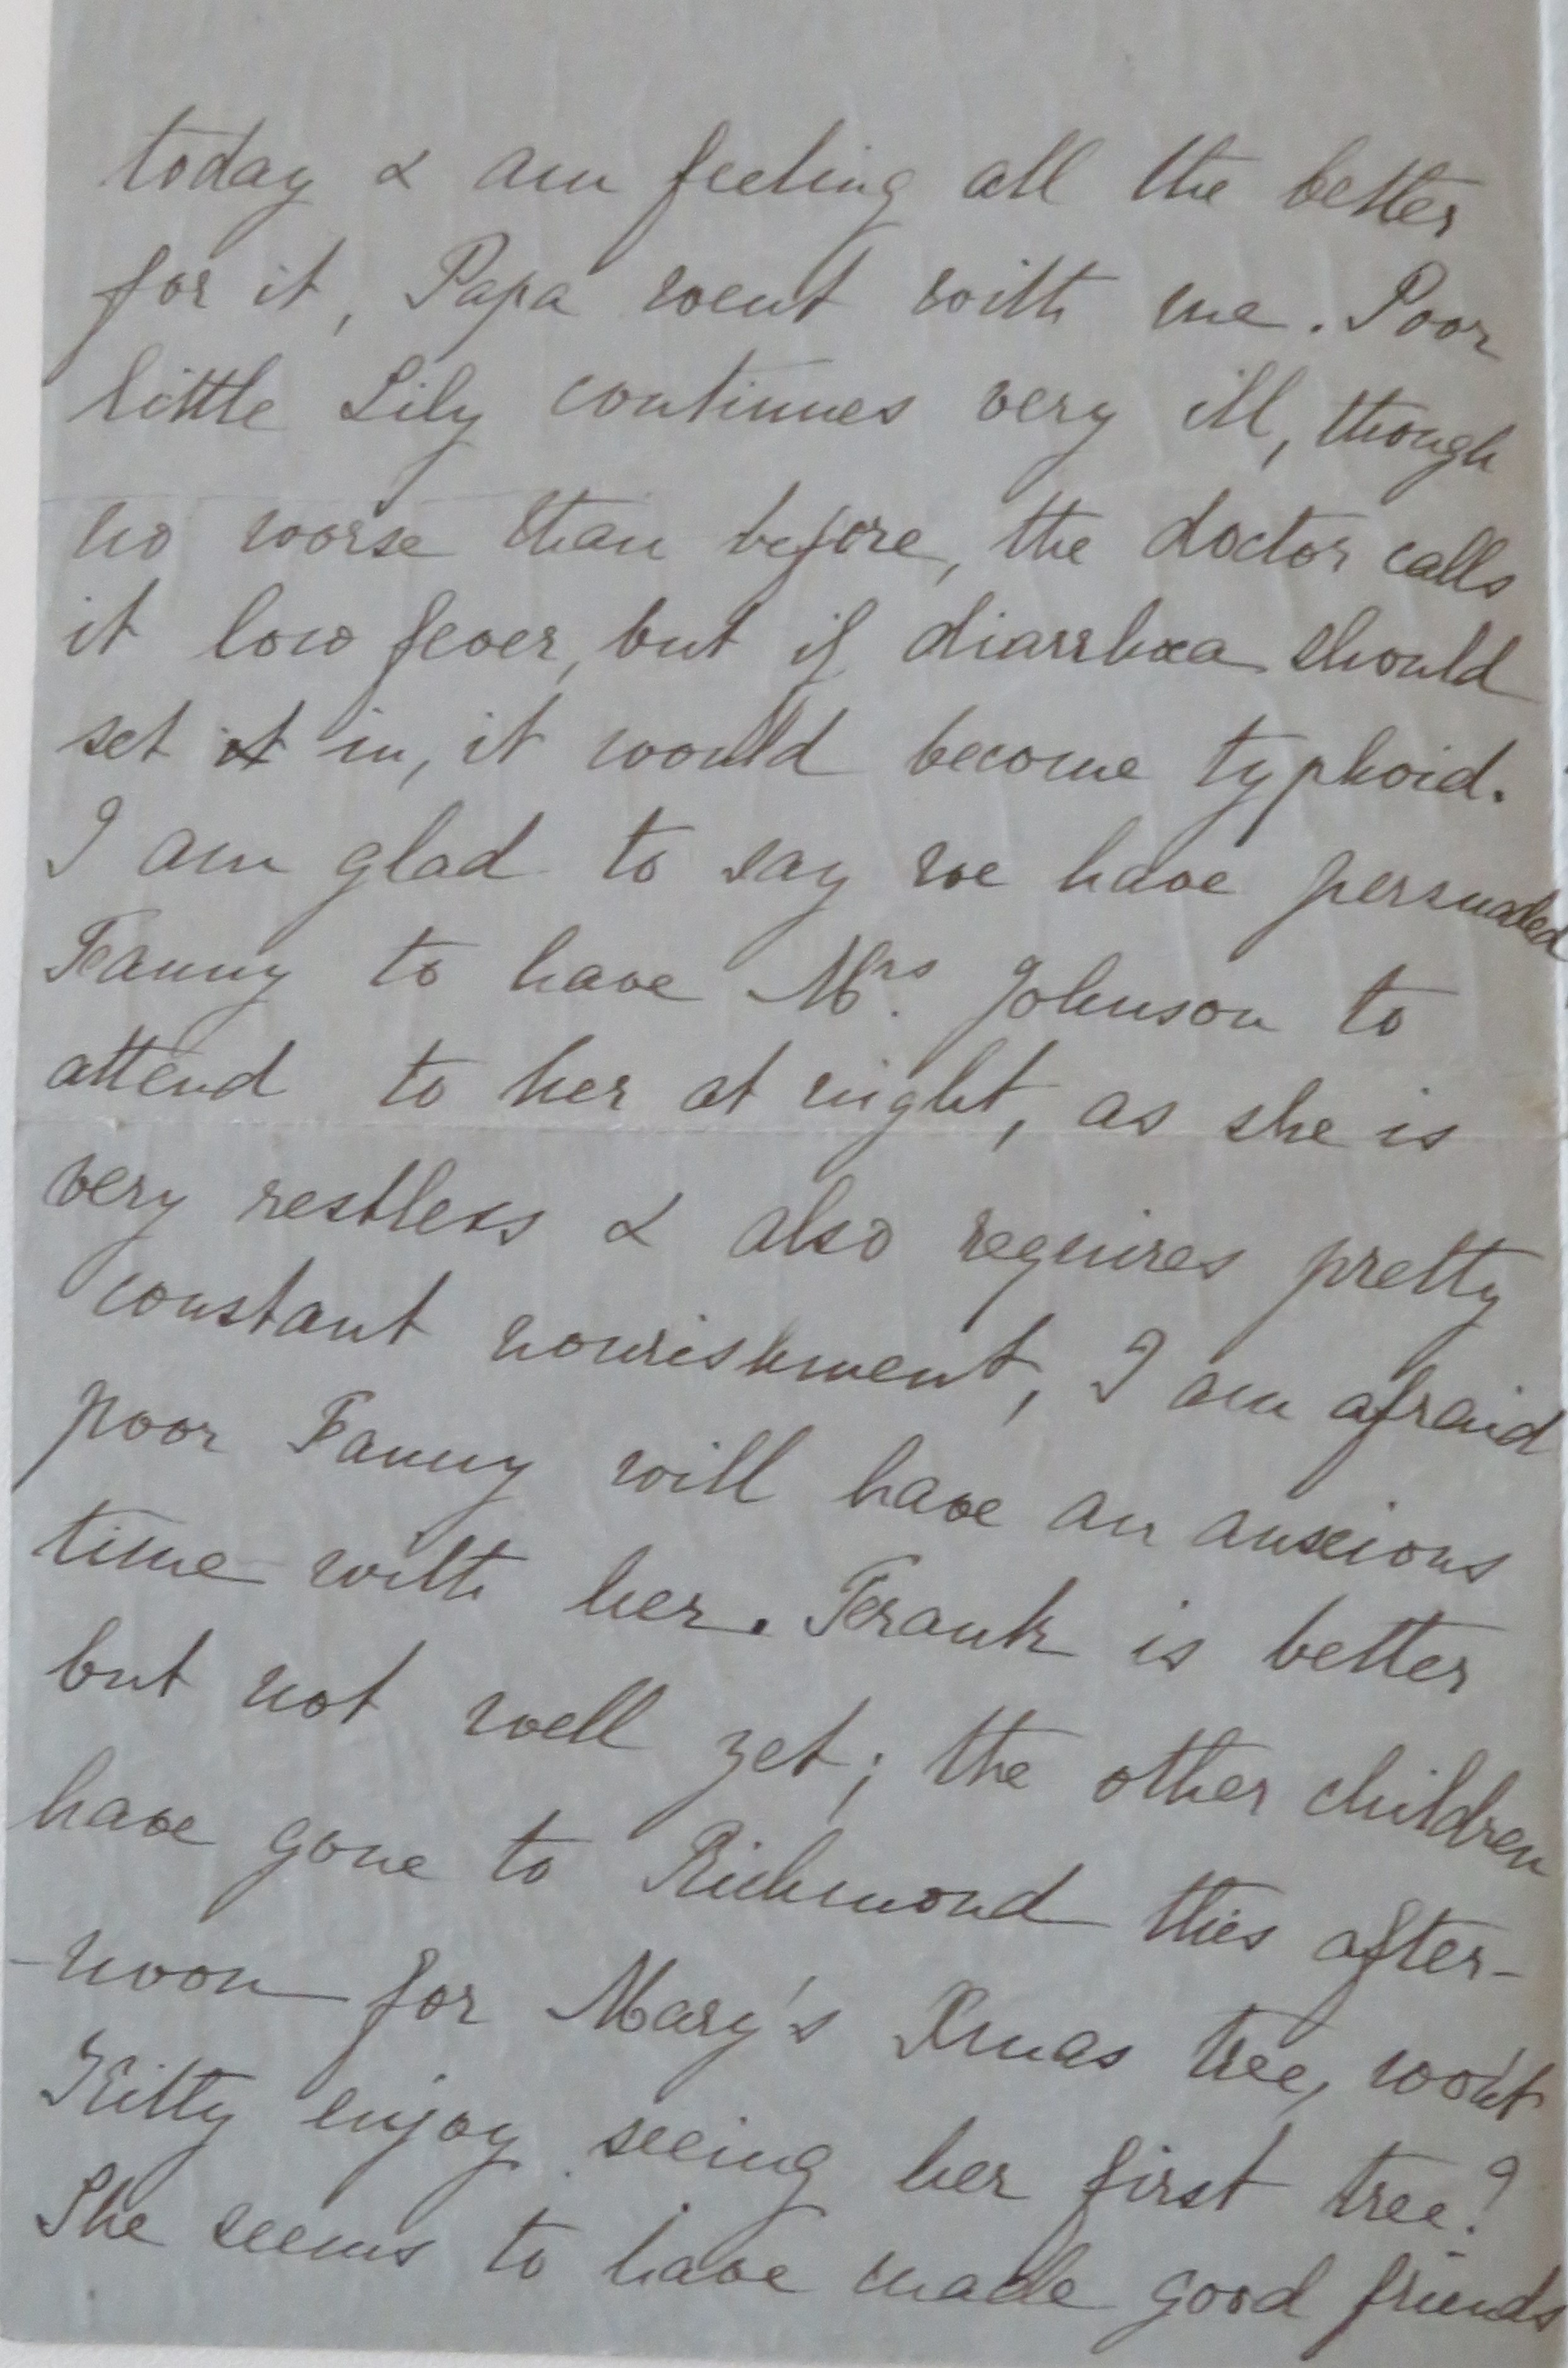 today & am feeling all the better
for it, Papa went with me. Poor
little Lily continues very ill, though
no worse than before, the doctor calls
it low fever, but if diarrhœa should
set it in, it would become typhoid.
I am glad to say we have persuaded
Fanny to have Mrs. Johnson to
attend to her at night, as she is
very restless & also requires pretty
constant nourishment, I am afraid
poor Fanny will have an anxious
time with her. Frank is better
but not well yet; the other children
have gone to Richmond this after-
-noon for Mary's Xmas tree, wo'nt
Kitty enjoy seeing her first tree?
She seems to have made good friends